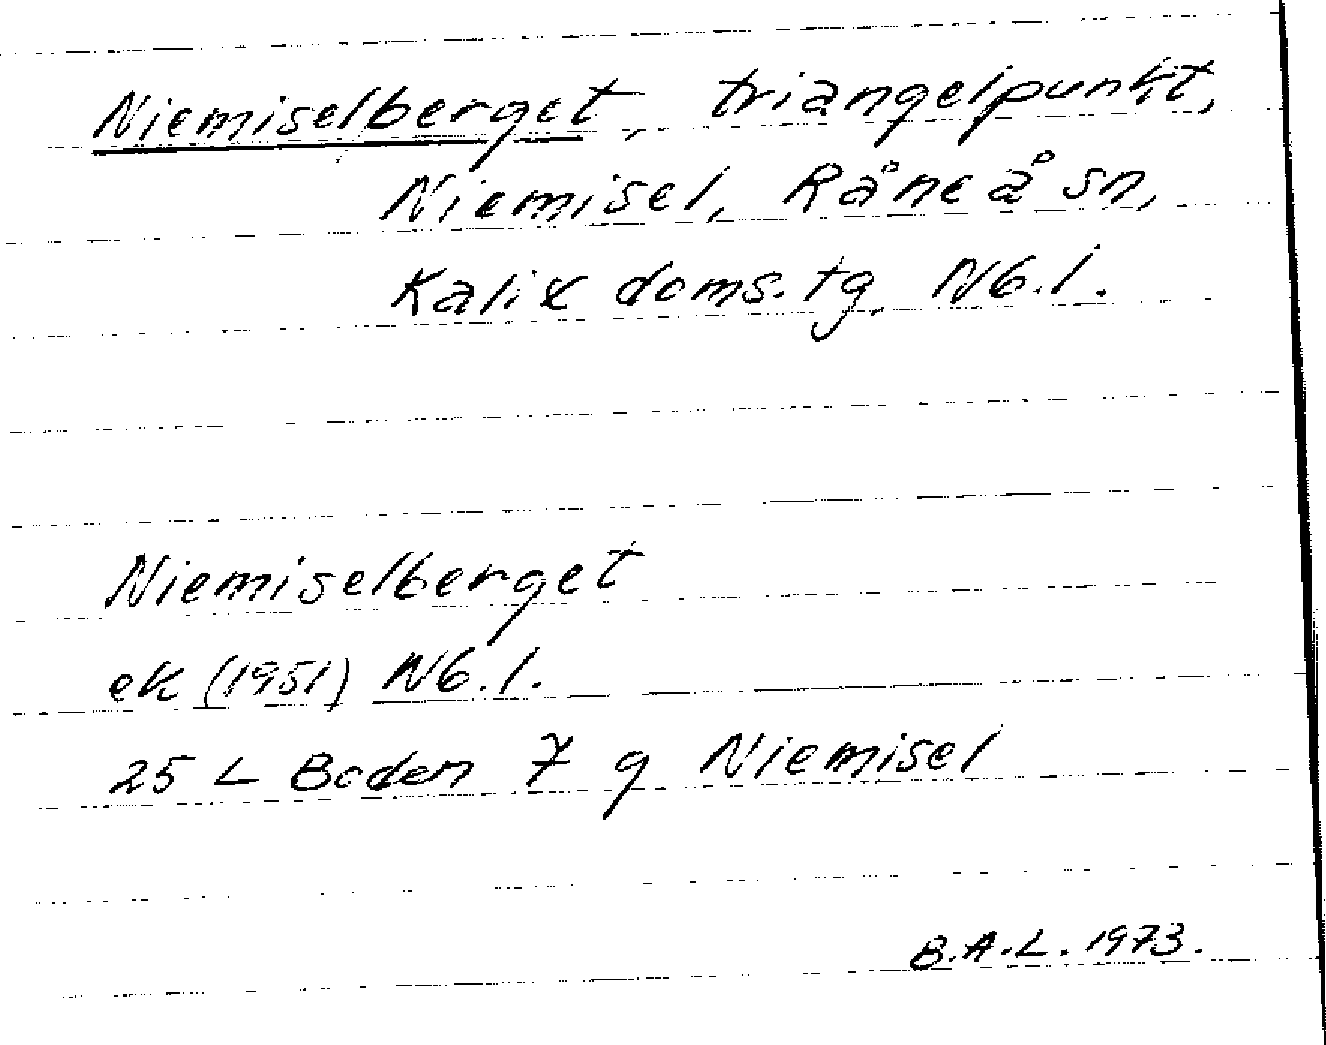 Niemiselberget, triangelpunkt,
Niemisel, Råneå sn,
Kalix doms. tg. Nb. l.
Niemiselberget
ek (1951) Nb. l.
25 L Boden 7 g Niemisel
B.A.L. 1973.